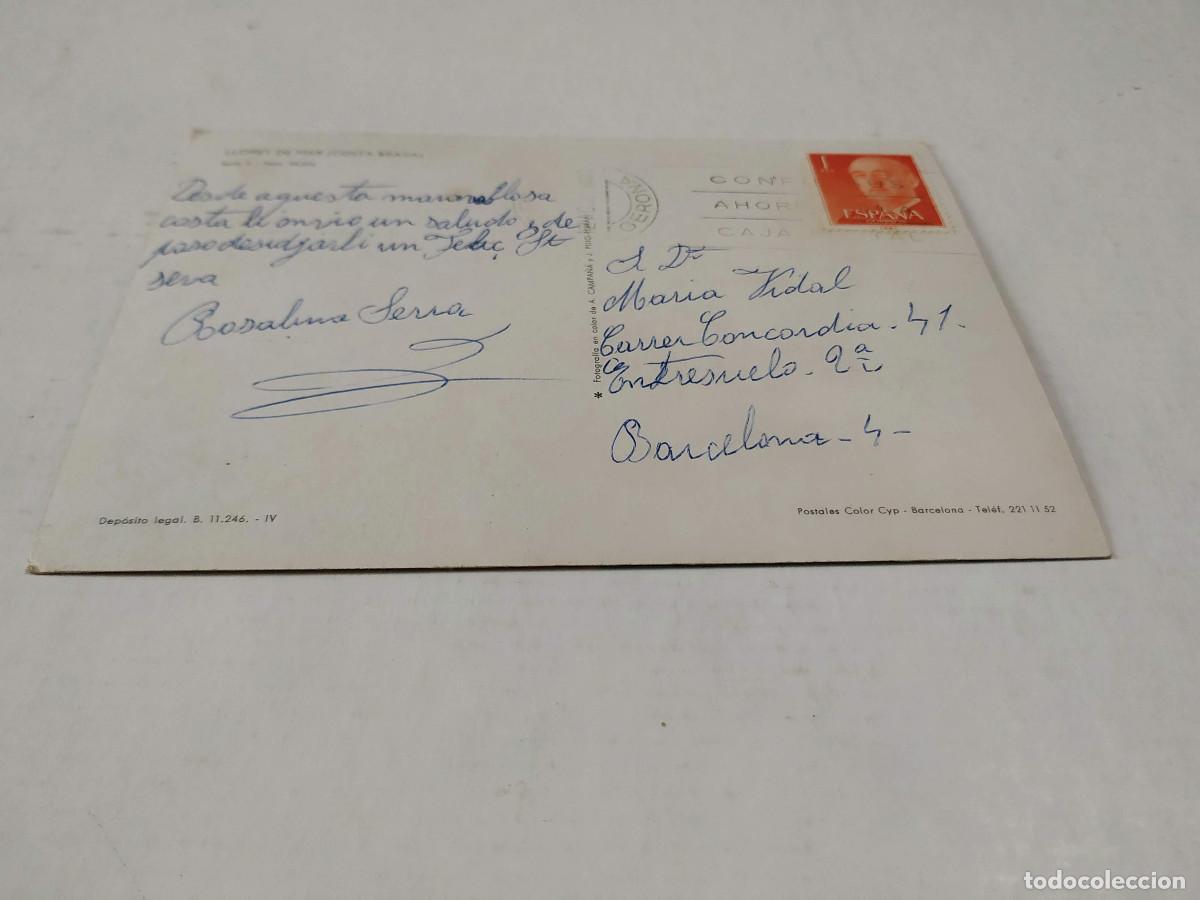 LLORET DE MAR (COSTA BRAVA)
Desde aquesta maravellosa
costa li enrio un saludo y de
paso desidjarli un Feliç St
seva
Rosalina Serra
Depósito legal. B. 11.246. - IV
* Fotografía en color de A. CAMPAÑA y J. PUIG-FERRAN
GERONA
CONF
AHOR
CAJA
1
ESPAÑA
A Dª
Maria Vidal
Carrer Concordia - 41 -
Entresuelo - 2ª
Barcelona - 4 -
Postales Color Cyp - Barcelona - Teléf. 221 11 52
todocoleccion